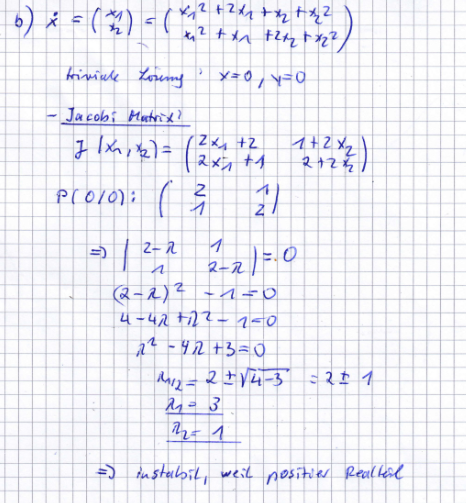 b) ẋ = (x1 x2) = (x1² + 2x1 + x2 + x2²
x1² + x1 + 2x2 + x2²)
triviale Lösung: x=0, y=0
- Jacobi Matrix:
J(x1,x2) = (2x1+2 1+2x2
2x1+1 2+2x2)
P(0/0): (2 1
1 2)
=> |2-λ 1
1 2-λ| = 0
(2-λ)² - 1 = 0
4 - 4λ + λ² - 1 = 0
λ² - 4λ + 3 = 0
λ1/2 = 2 ± √4-3 = 2 ± 1
λ1 = 3
λ2 = 1
=> instabil, weil positiver Realteil